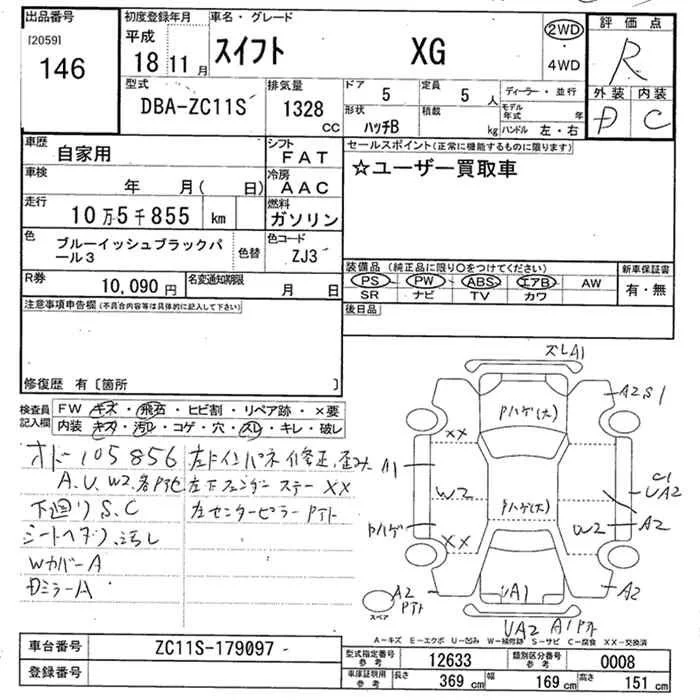 出品番号
[2059]
146
初度登録年月
平成
18 11 月
車名・グレード
スイフト XG
2WD
・
4WD
評価点
R
外装 内装
D C
型式
DBA-ZC11S
排気量
1328
CC
ドア
5
定員
5 人
形状
ハッチB
積載
kg
ディーラー・並行
モデル年式 年
ハンドル 左・右
車歴
自家用
シフト
FAT
車検
年 月( 日)
冷房
AAC
走行
10万5千855 km
燃料
ガソリン
色
ブルーイッシュブラックパール3
色替
色コード
ZJ3
R券
10,090 円
名変通知期限
月 日
セールスポイント(正常に機能するものに限ります)
☆ユーザー買取車
装備品(純正品に限り○をつけてください)
PS PW ABS エアB AW
SR ナビ TV カワ
新車保証書
有・無
後日品
注意事項申告欄(不具合内容等は具体的に記入して下さい)
修復歴 有〔箇所 〕
検査員記入欄
FW キズ・飛石・ヒビ割・リペア跡・×要
内装 キズ・汚れ・コゲ・穴・スレ・キレ・破レ
オドー105856
A.U.W2.各Pタヒ
下廻りS.C
シートヘタリ、汚レ
WカバーA
DミラーA
左ドインパネ修正、歪み
左下フェンダーステーXX
左センターピラーPアト
ズレA1
A2S1
Pハゲ(大)
XX
A1
W2
Pハゲ(大)
C1
UA2
A2
Pハゲ
W2
XX
A2
Pアト
A2
UA1
UA2 A1Pアト
スペア
A-キズ E-エクボ U-凹み W-補修跡 S-サビ C-腐食 XX-交換済
車台番号
ZC11S-179097
登録番号
型式指定番号
参考
12633
類別区分番号
参考
0008
車庫証明用
参考
長さ
369 cm
幅
169 cm
高さ
151 cm